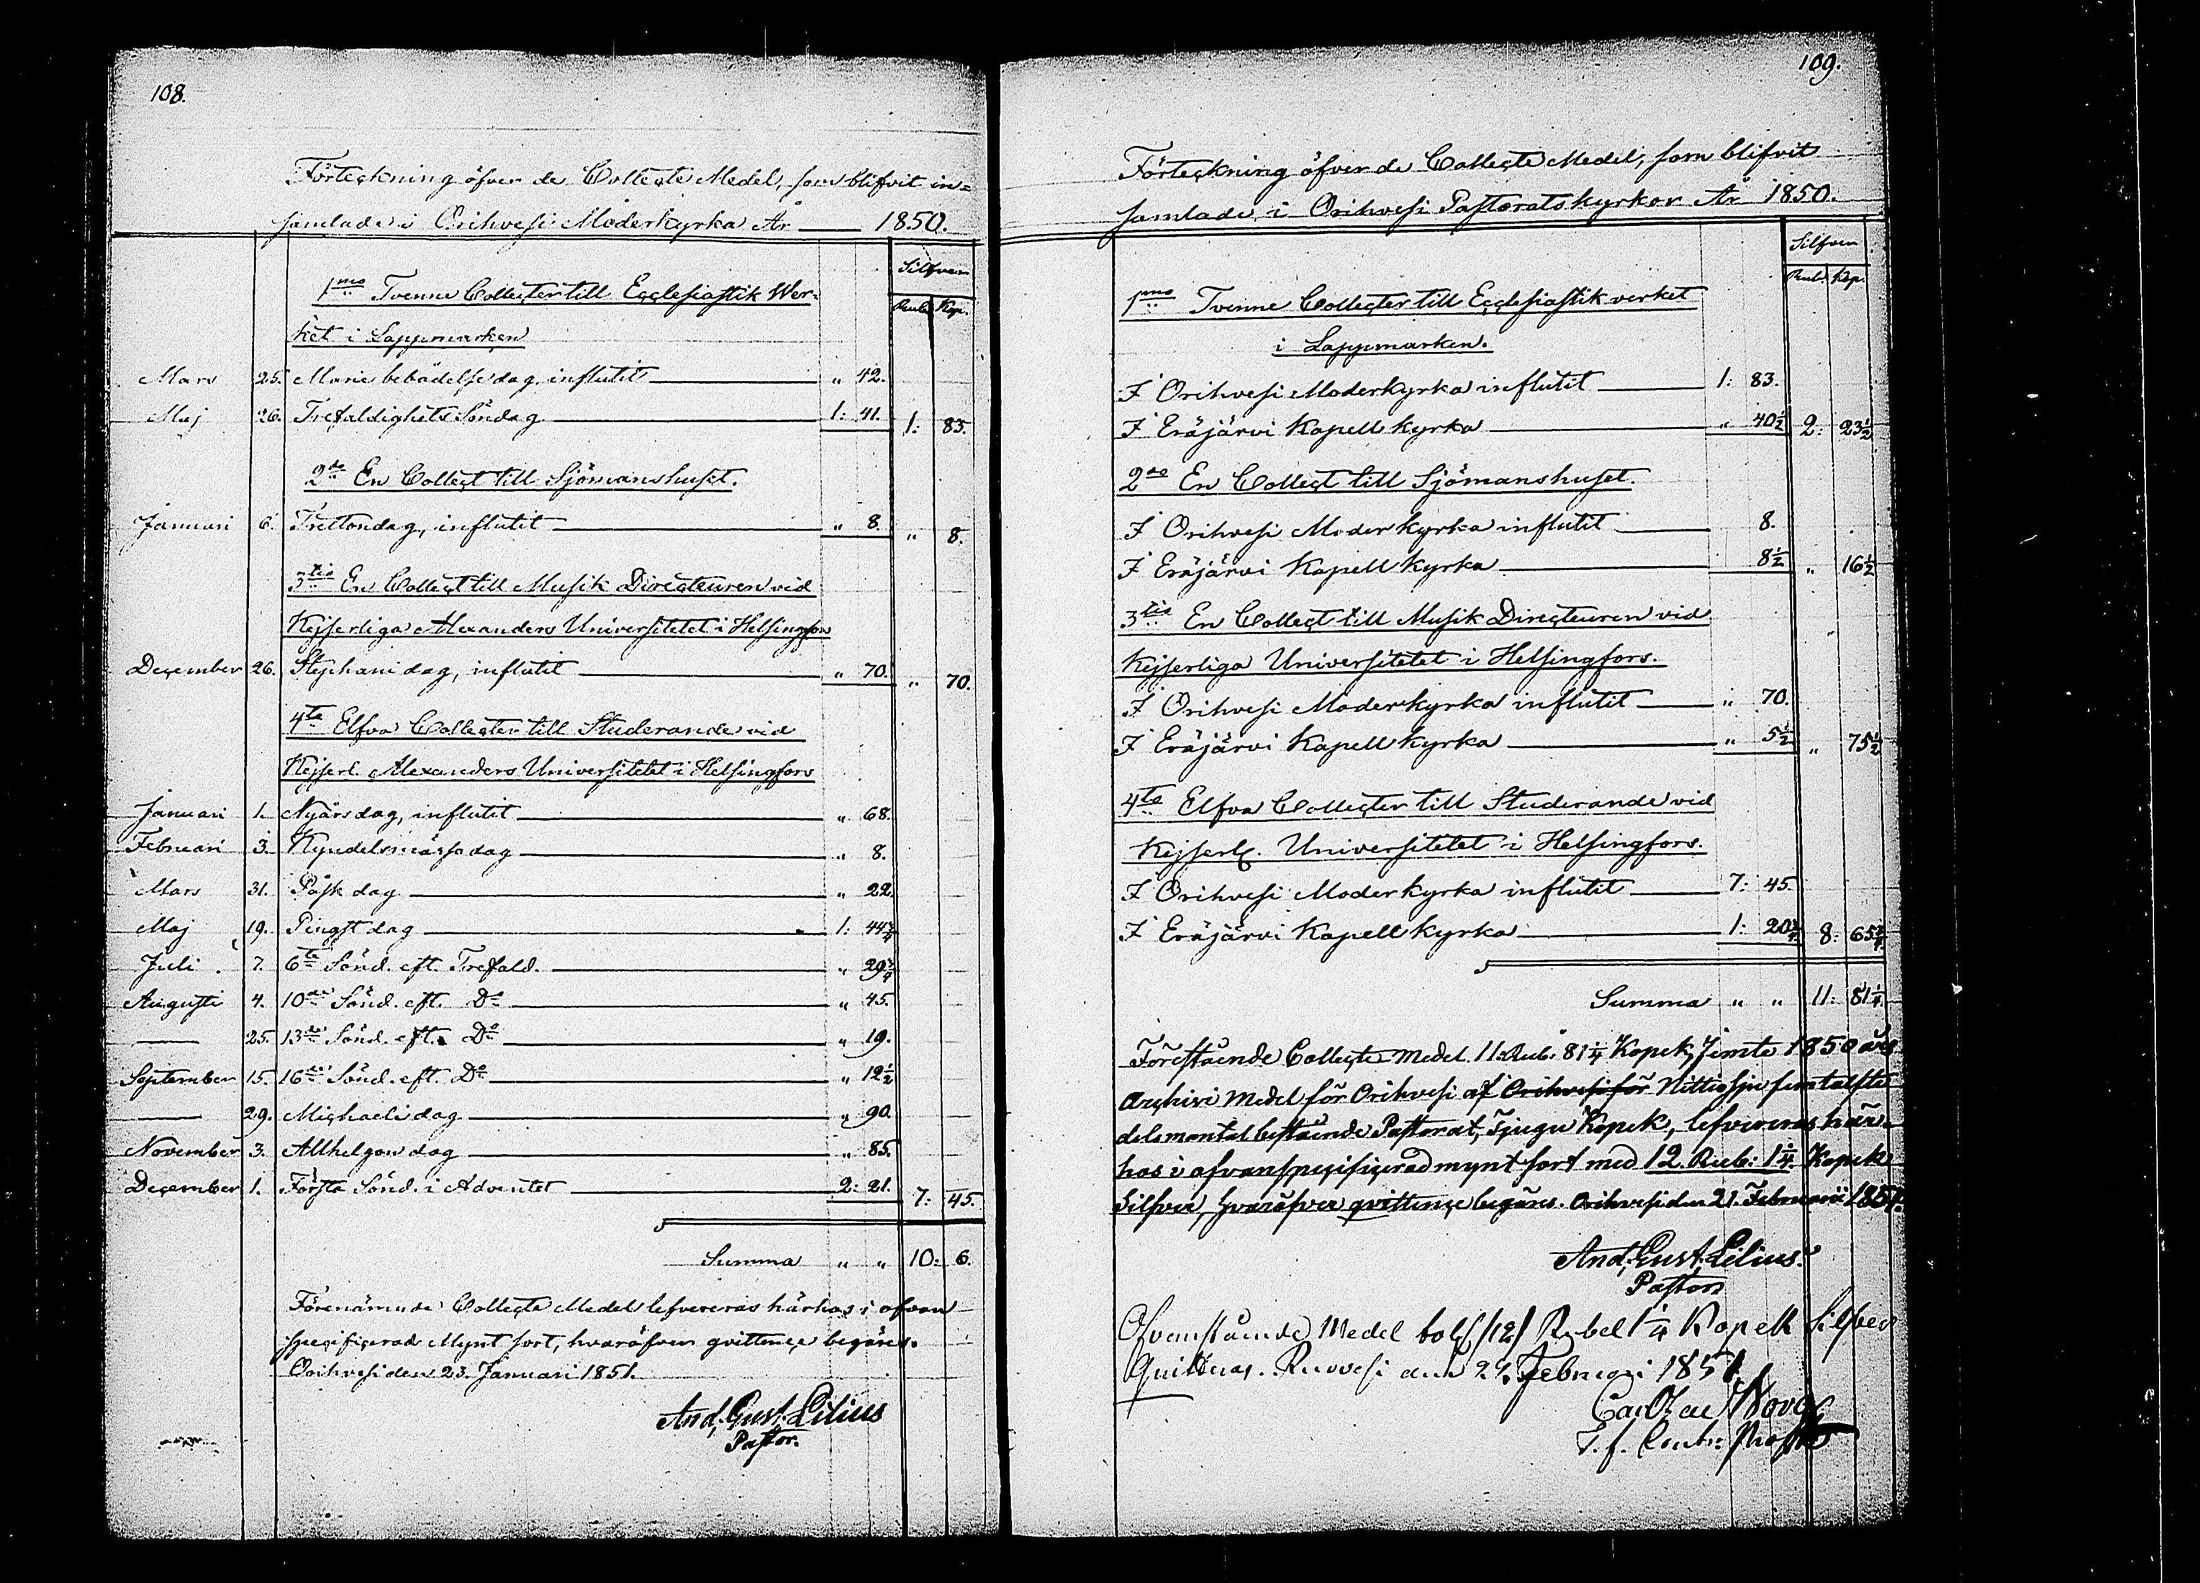 108.
Förteckning öfver de Collecte Medel, som blifvit in=
samlade i Orihvesi Moderkyrka År 1850.
Silfver
Rub. Kop.
1mo Tvenne Collecter till Ecclesiastik Wer=
ket i Lappmarken
Mars 25. Mariæ bebådelse dag, influtit " 42.
Maj 26. Trefaldighets Söndag 1: 41. 1: 83.
2do En Collect till Sjömanshuset.
Januari 6. Trettondag, influtit " 8. " 8.
3tio En Collect till Musik Directeuren vid
Kejserliga Alexanders Universitetet i Helsingfors
December 26. Stephani dag, influtit " 70. " 70.
4to Elfva Collecter till Studerande vid
Kejserl. Alexanders Universitetet i Helsingfors
Januari 1. Nyårsdag, influtit " 68.
Februari 3. Kyndelsmässodag " 8.
Mars 31. Påsk dag " 22.
Maj 19. Pingst dag 1: 44 3/4
Juli 7. 6te Sönd. eft. Trefald. " 29 3/4
Augusti 4. 10de Sönd. eft. Do " 45.
— 25. 13de Sönd. eft. Do " 19.
September 15. 16de Sönd. eft. Do " 12 1/2
— 29. Michaeli dag " 90.
November 3. Allhelgon dag " 85.
December 1. Första Sönd. i Adventet 2: 21. 7: 45.
Summa " " 10: 6.
Förenämnde Collecte Medel lefvereras härhos i ofvan
specificerad Mynt sort, hvaröfver qvittence begäres.
Orihvesi den 23. Januari 1851.
And. Gust. Lilius
Pastor.
109.
Förteckning öfver de Collecte Medel, som blifvit
samlade i Orihvesi Pastoratskyrkor År 1850.
Silfver
Rub. Kop.
1mo Tvenne Collecter till Ecclesiastik verket
i Lappmarken.
I Orihvesi Moderkyrka influtit 1: 83.
I Eräjärvi Kapell kyrka " 40 1/2 2: 23 1/2
2do En Collect till Sjömanshuset.
I Orihvesi Moder kyrka influtit 8.
I Eräjärvi Kapell kyrka 8 1/2 " 16 1/2
3tio En Collect till Musik Directeuren vid
Kejserliga Universitetet i Helsingfors.
I Orihvesi Moderkyrka influtit " 70.
I Eräjärvi Kapell kyrka " 5 1/2 " 75 1/2
4to Elfva Collecter till Studerande vid
Kejserl. Universitetet i Helsingfors.
I Orihvesi Moder kyrka influtit 7: 45.
I Eräjärvi Kapell kyrka 1: 20 3/4 8: 65 3/4
Summa " " 11: 81 1/4
Förestående Collecte Medel 11: Rub: 81 1/4 Kopek, Jemte 1850 års
Archivi Medel för Orihvesi af Orihvesi för Nittiosju femtalftel
dels mantal bestående Pastorat, Tjugu Kopek, lefvereras här=
hos i ofvanspecificerad mynt sort med 12. Rub: 1 1/4 Kopek
Silfver, hvaröfver qvittence begäres. Orihvesi den 21. Februarii 1851.
And. Gust. Lilius.
Pastor
Ofvanstående Medel tolf /12/ Rubel 1 1/4 Kopek Silfver
Quitteras. Ruovesi den 24. Februari 1851.
T. f. Contr: Prost